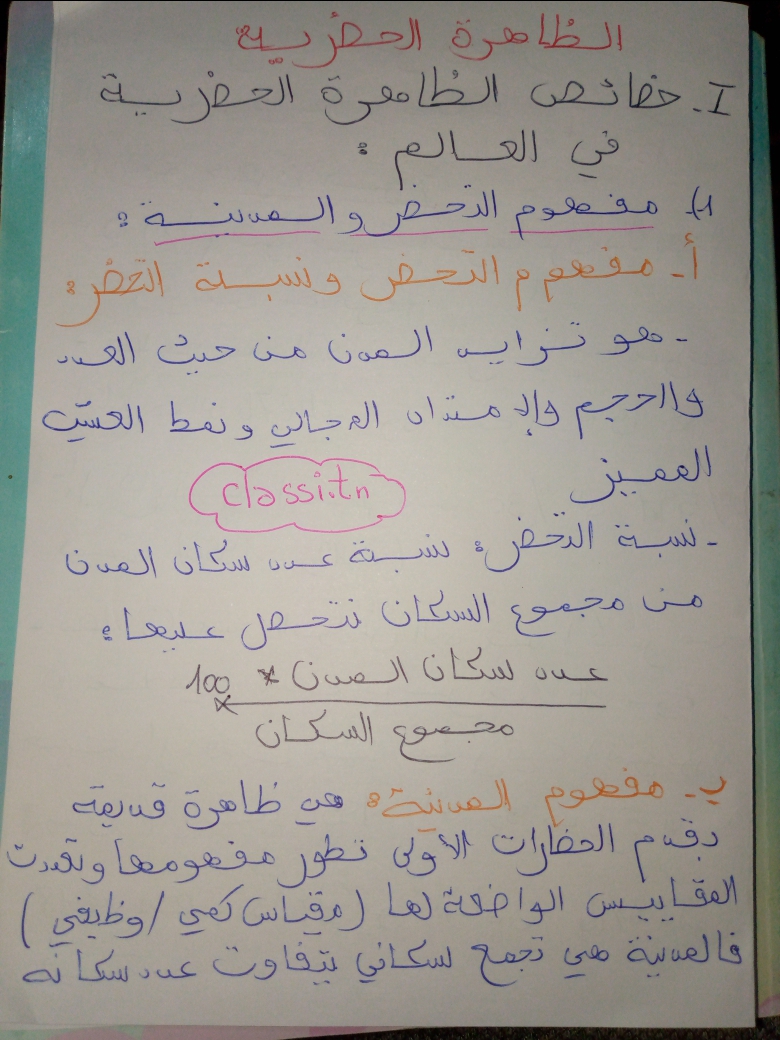 الظاهرة الحضرية
I. خصائص الظاهرة الحضرية
في العالم :
1). مفهوم التحضر والمدينة :
أ. مفهوم التحضر ونسبة التحضر:
- هو تزايد المدن من حيث العدد
والحجم والإمتداد المجالي ونمط العيش
المميز
classi.tn
- نسبة التحضر: نسبة عدد سكان المدن
من مجموع السكان نتحصل عليها :
عدد سكان المدن × 100
مجموع السكان
ب. مفهوم المدينة: هي ظاهرة قديمة
بقدم الحضارات الأولى تطور مفهومها وتعددت
المقاييس الواضعة لها (مقياس كمي / وظيفي)
فالمدينة هي تجمع سكاني يتفاوت عدد سكانه